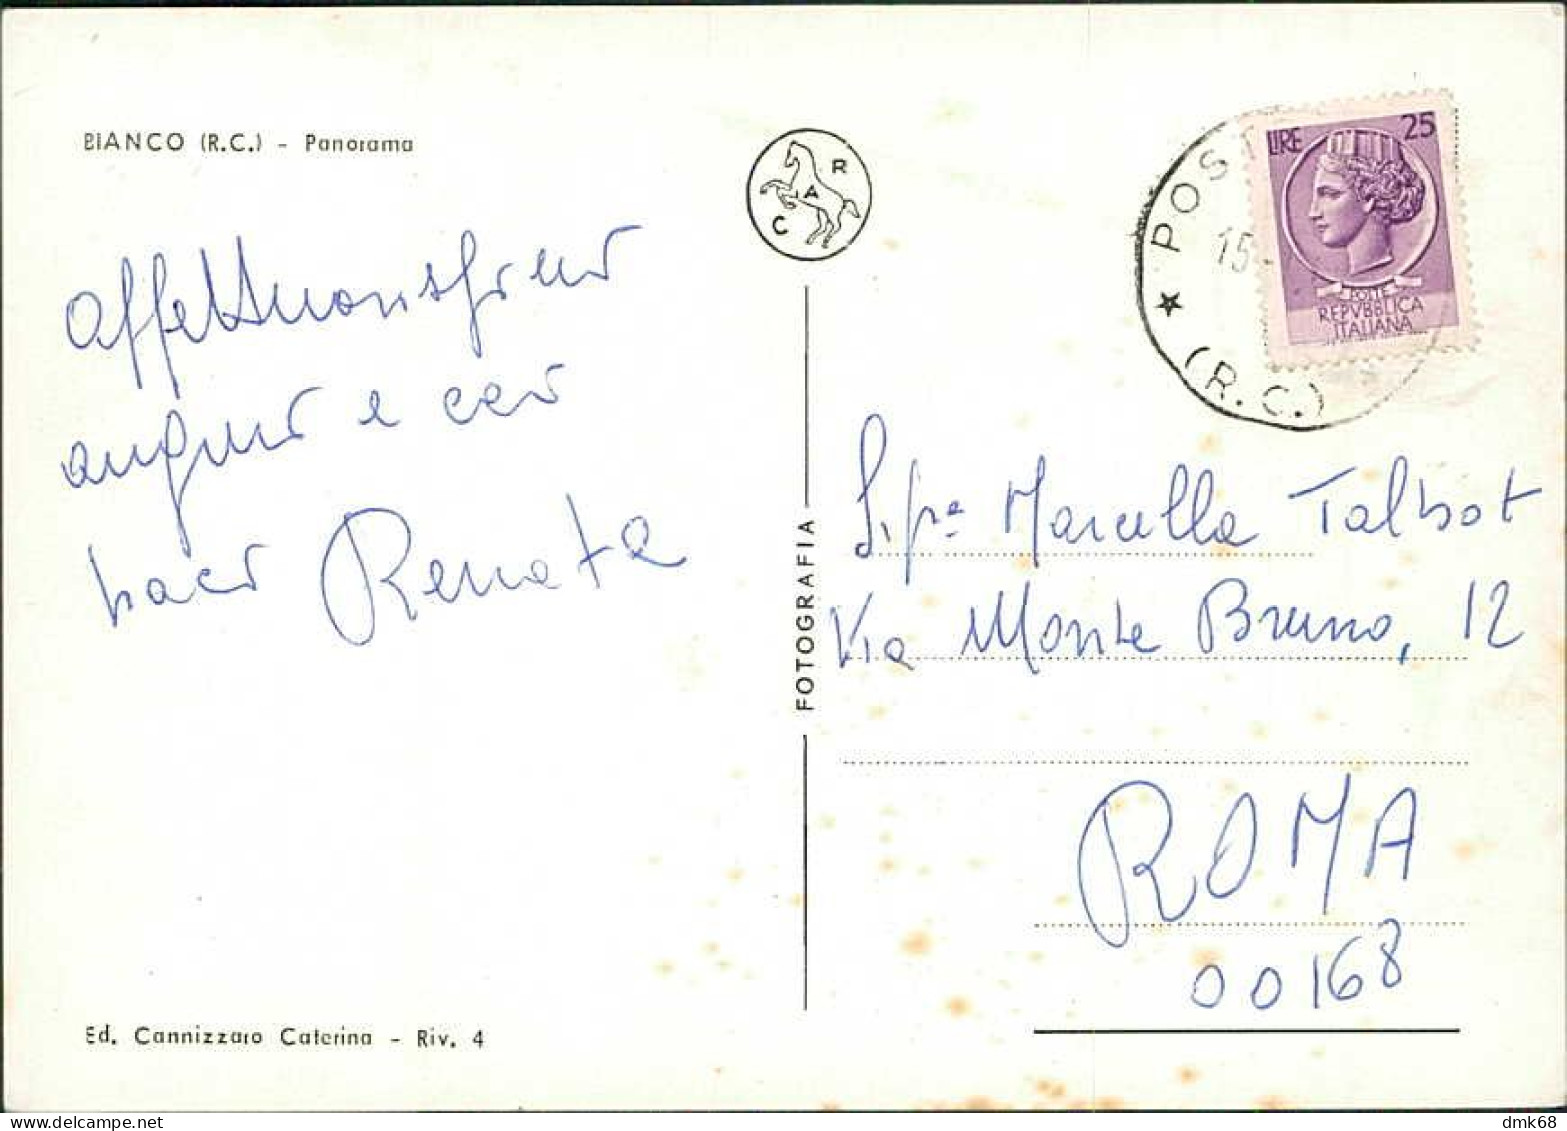 BIANCO (R.C.) - Panorama
Affettuosissimi
auguri e cari
baci Renata
R
A
C
FOTOGRAFIA
LIRE 25
POSTE
REPVBBLICA
ITALIANA
★ POST
15
(R.C.)
Sig.na Marcella Talbot
Via Monte Bruno, 12
ROMA
00168
Ed. Cannizzaro Caterina - Riv. 4
dmk68